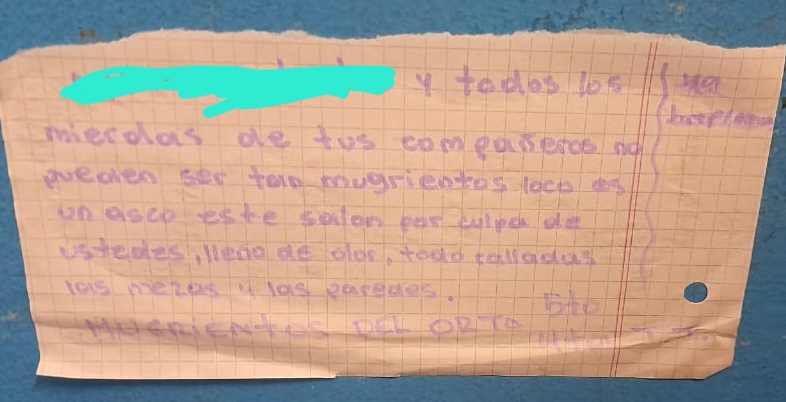 y todos los
mierdas de tus compañeros no
pueden ser tan mugrientos loco es
un asco este salon por culpa de
ustedes, lleno de olor, todo calladas
las mezas y las paredes.
MUGRIENTOS DEL ORTO
5to